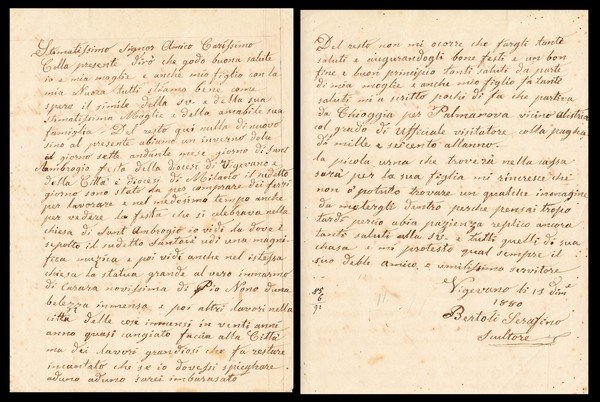 Stimatissimo Signor Amico Carissimo
Colla presente dirò che godo buona salute
io e mia moglie e anche mio figlio con la
mia Nuora tutti stiamo bene come
spero il simile della sv. e della sua
stimatissima Moglie e della amabile sua
famiglia. Del resto qui nulla di nuovo
sino al presente abiamo un inverno dolce
il giorno sette andante mese giorno di Sant
Ambrogio festa della diocesi di Vigevano e
della Città e diocesi di Milano il sudetto
giorno sono stato la per comprare dei ferri
per lavorare e nel medesimo tempo anche
per vedere la festa che si celebrava nella
chiesa di Sant Ambrogio io vidi la dove è
sepolto il sudetto Santo e udì una magni-
fica muzica e poi vidi anche nel istessa
chiesa la statua grande al vero immarmo
di Carara novissima di Pio Nono d'una
belezza immensa e poi altri lavori nella
città delle cose immensi in venti anni
anno quasi cangiato faccia alla Città
ma dei lavori grandiosi che fa restare
incantato che se io dovessi spieghare
aduno aduno sarei imbarasato
Del resto non mi ocorre che fargli tanti
saluti e augurandogli bone feste e un bon
fine e buon principio tanti saluti da parte
di mia moglie e anche mio figlio fa tanto
saluti mi a scritto pochi dì fa che partiva
da Chioggia per Palmanova vicino
col grado di Ufficiale visitatore colla pagha
di mille e seicento all'anno.
la picola urna che troverà nella cassa
sarà per la sua figlia mi rincresce che
non ò potuto trovare un qualche immagine
da metergli dentro perche pensai tropo
tardo percio abia pazienza replico ancora
tanti saluti alla sv. e tutti quelli di sua
chasa e mi protesto qual sempre il
suo deble amico, e umilissimo servitore
Vigevano di 15 Dime
1880
Bertoli Serafino
Scultore